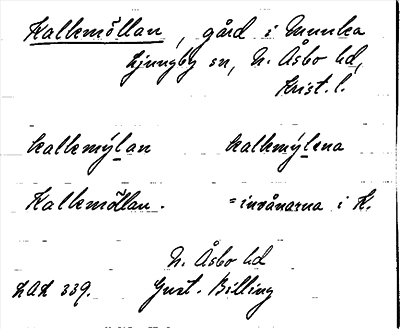 Kalkmöllan, gård i Munka
Ljungby sn, N. Åsbo hd,
Krist. l.
kalkmy̍lan kalkmy̍lena
Kalkmöllan. = invånarna i K.
N. Åsbo hd
LAL 339. Gust. Billing